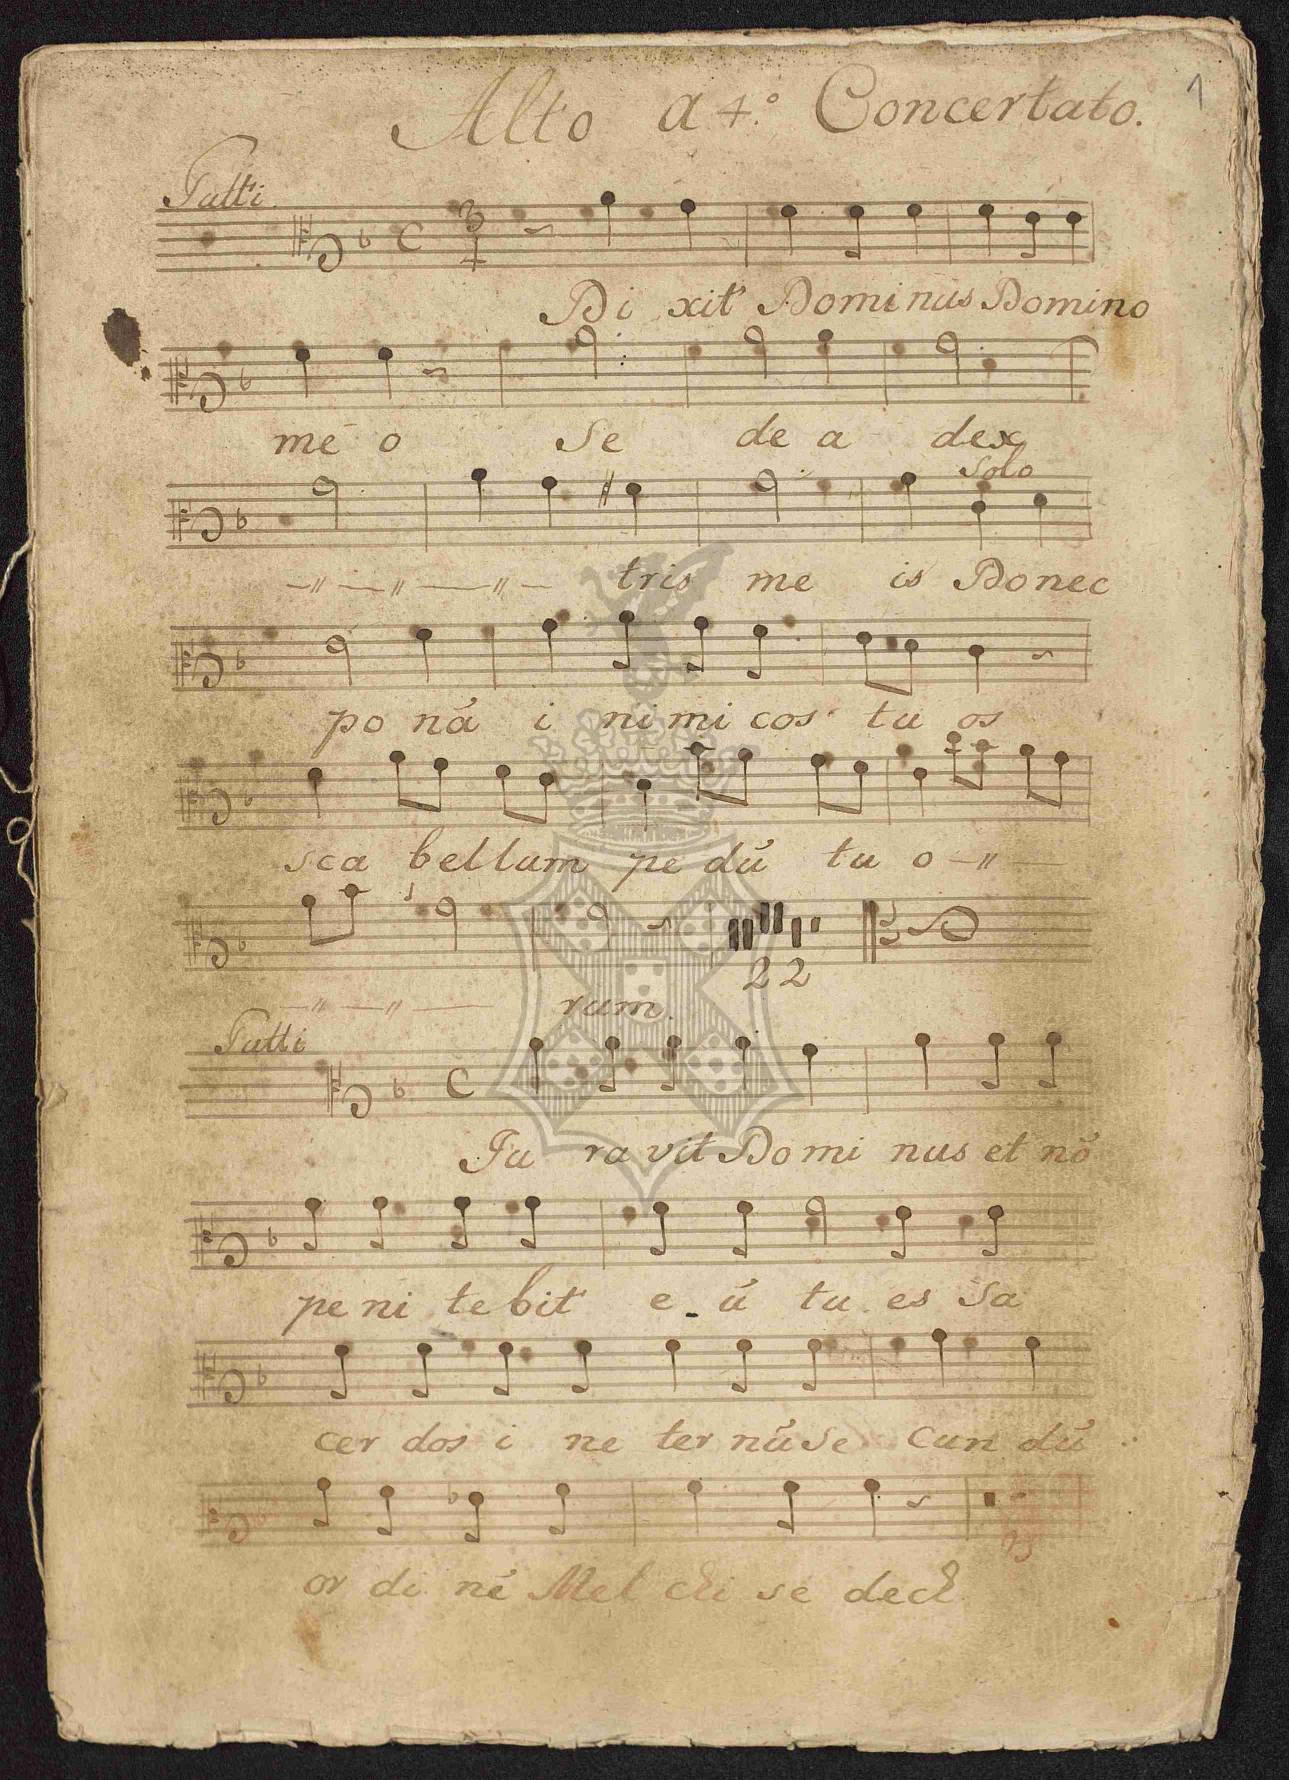 Alto a 4.º Concertato.
1
Tutti.
Di xit Dominus Domino
me o se de a dex
Solo
tris me is Donec
po nã i ni mi cos tu os
sca bellum pe dũ tu o
22
rum.
Tutti
Ju ra vit Domi nus et nõ
pe ni te bit e ũ tu es Sa
cer dos i ne ter nũ Se cun dũ
or di nẽ Mel chi se dech